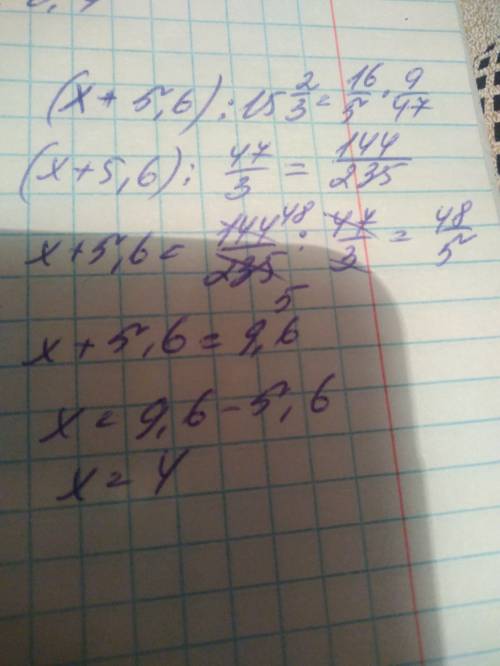 (x + 5,6) : 15 2/3 = 16/5 · 9/47
(x + 5,6) : 47/3 = 144/235
x + 5,6 = 144/235 : 47/3 = 48/5
48
5
x + 5,6 = 9,6
x = 9,6 - 5,6
x = 4